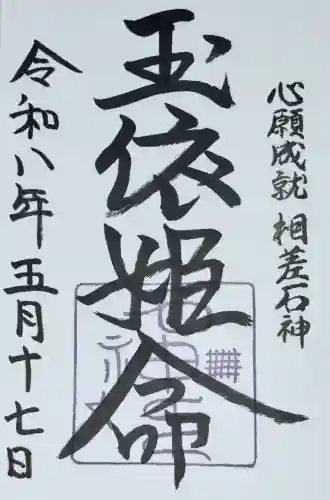 心願成就 相差石神
玉依姫命
令和八年五月十七日